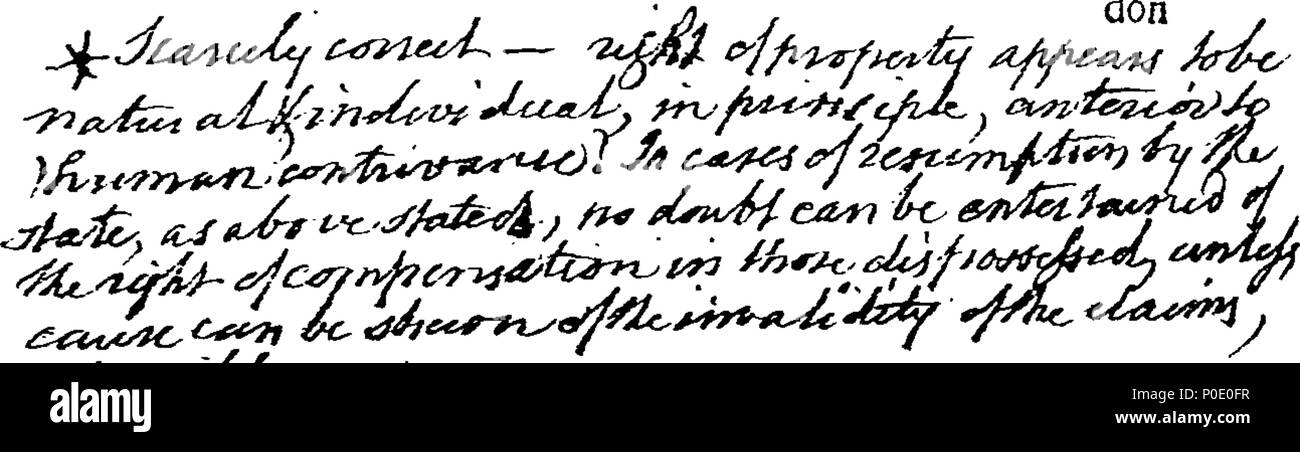 don
* Scarcely correct — right of property appears to be
natural & individual, in principle, anterior to
human contrivance? In cases of resumption by the
state, as above stated, no doubt can be entertained of
the right of compensation in those dispossessed, unless
cause can be shewn of the invalidity of the claims,
alamy
Image ID: P0E0FR
www.alamy.com